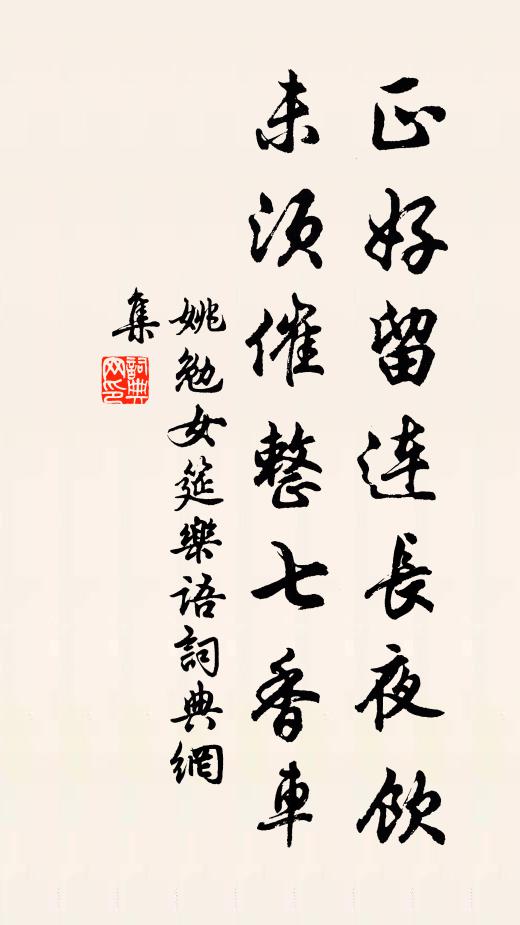 正好留連長夜飲
未須催整七香車
姚勉女筵樂語詞典網
集
詞典
网印